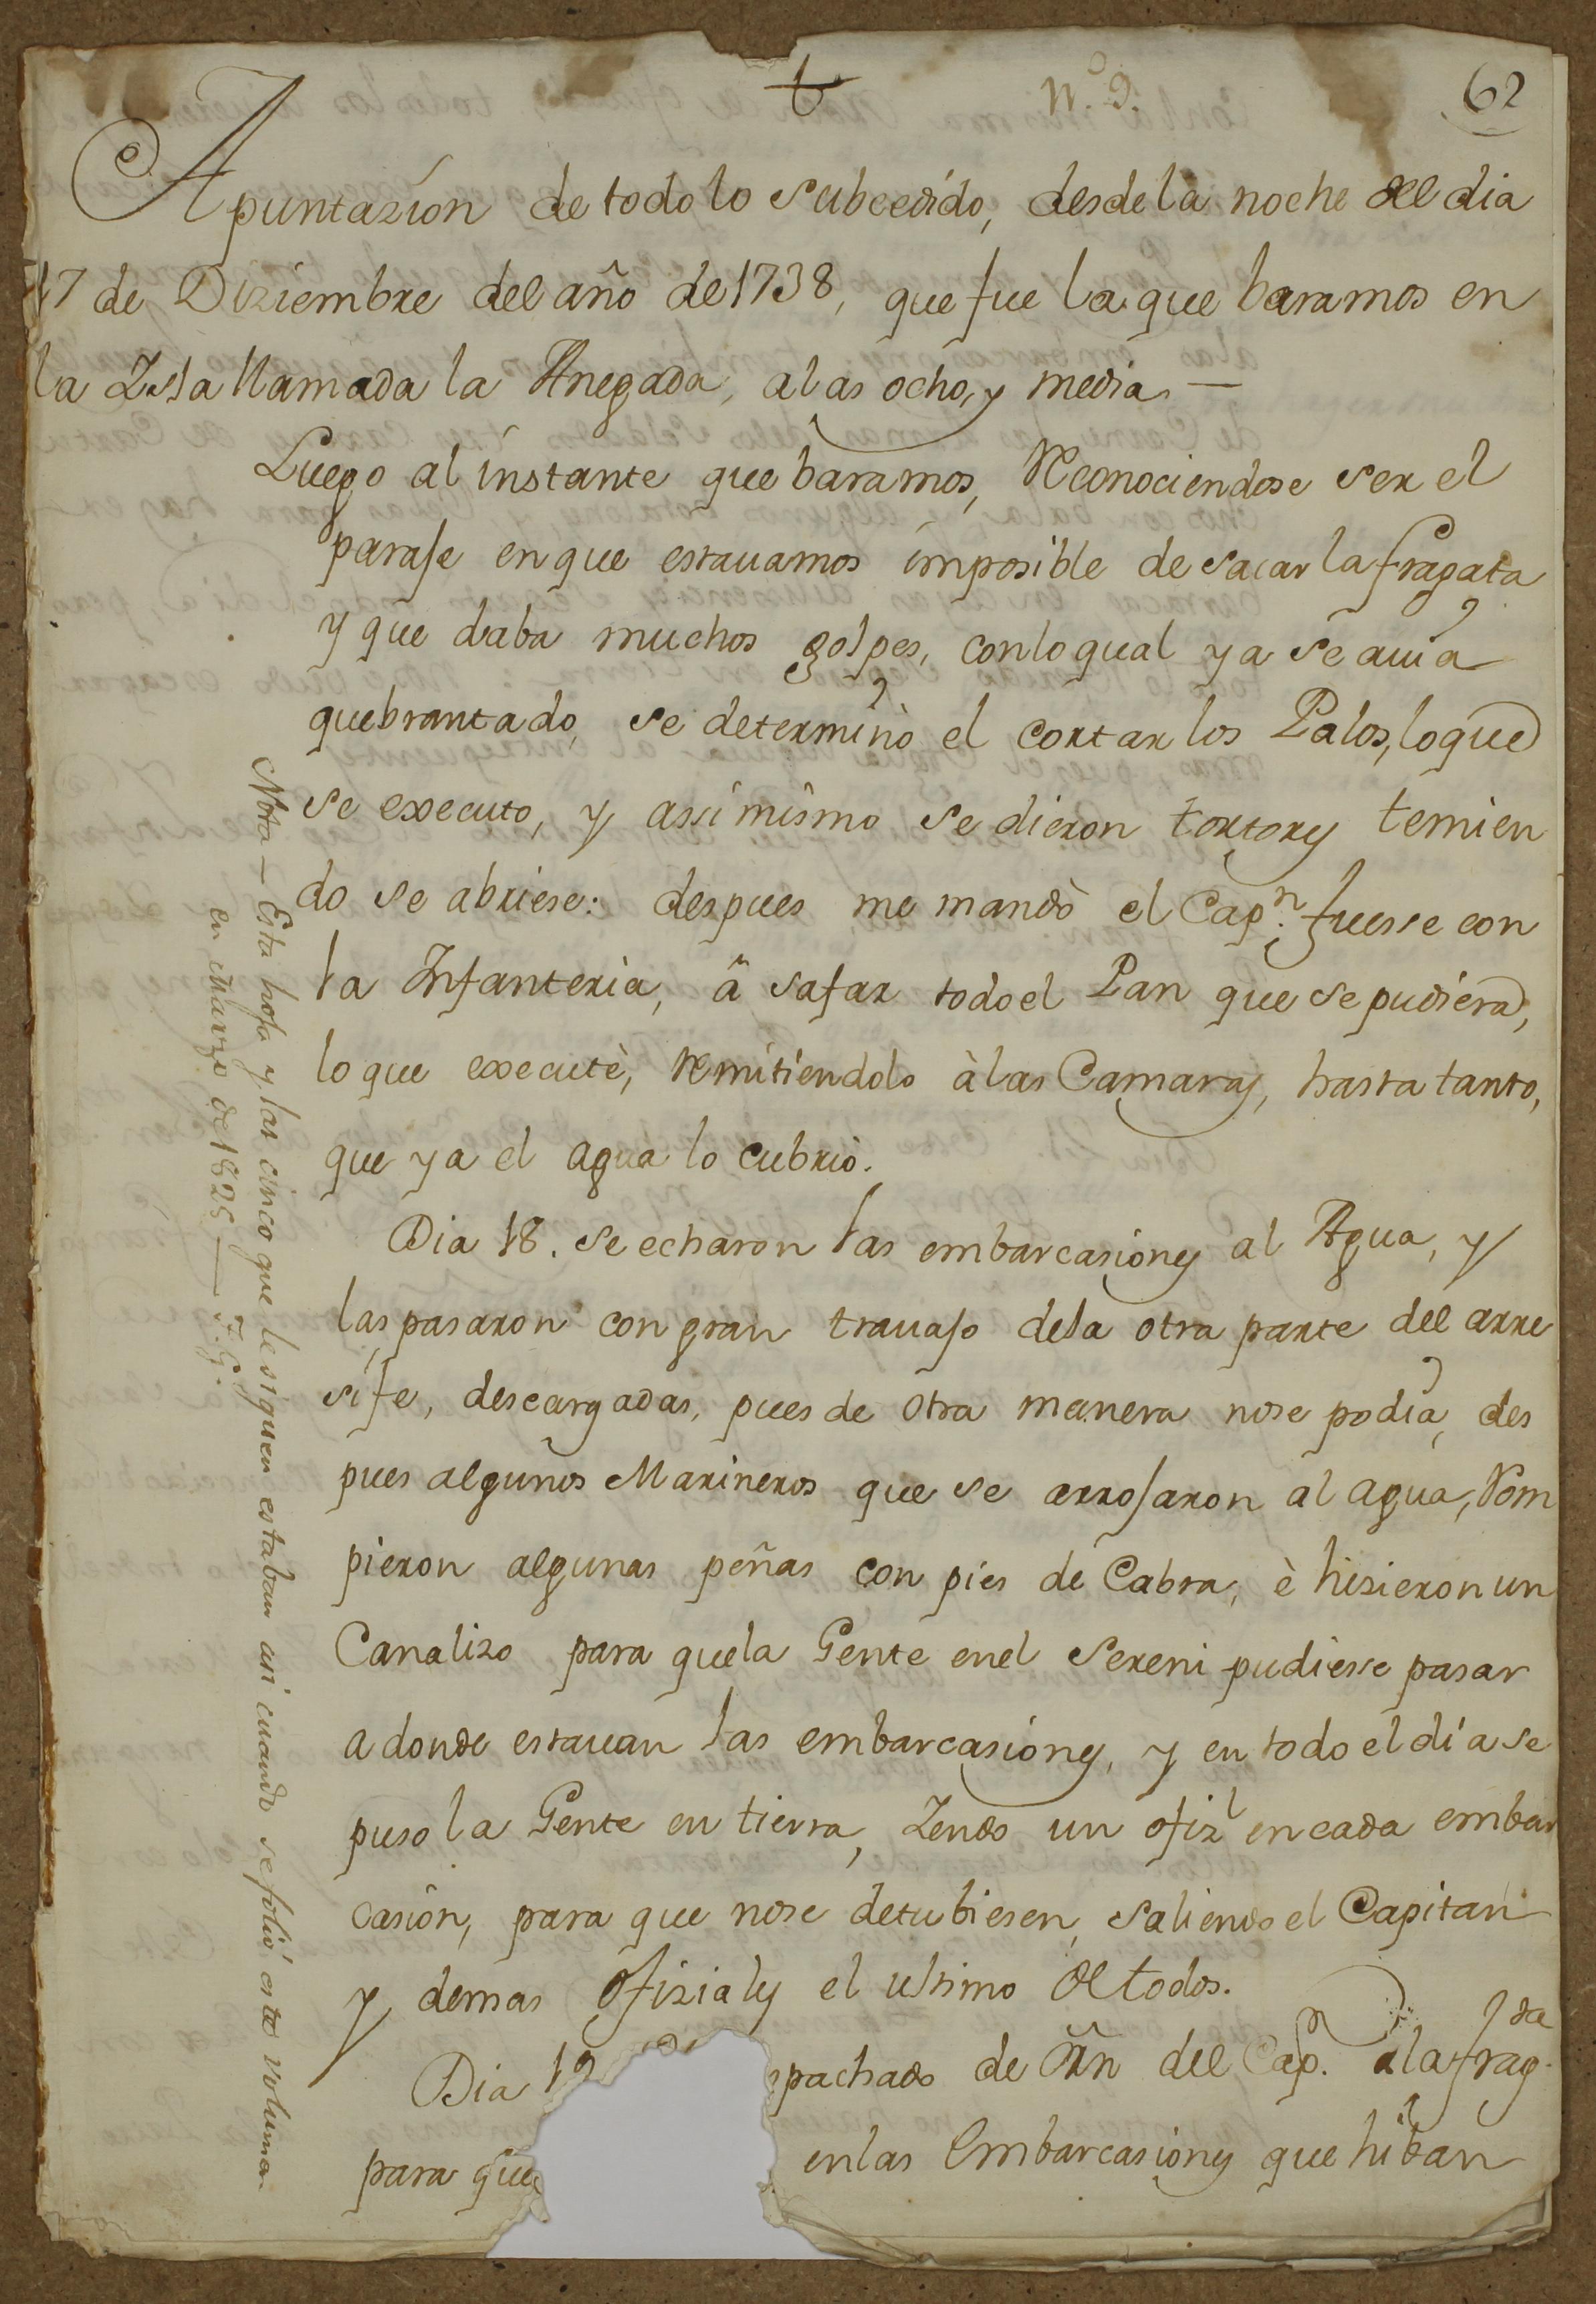 †
N.º 9.
62
Apuntazion de todo lo subcedido, desde la noche del dia
17 de Diziembre del año de 1738, que fue la que baramos en
la Isla llamada la Anegada, a las ocho, y media. —
Luego al instante que baramos, Reconociendose ser el
paraje en que estauamos imposible de sacar la fragata
y que daba muchos golpes, con lo qual ya se auia
quebrantado, se determinò el cortar los Palos, lo que
se executo, y assi mismo se dieron tortores temien
do se abriese: despues me mandò el Capn. fuesse con
la Infanteria, â safar todo el Pan que se pudiera,
lo que executè, Remitiendolo à las Camaras, hasta tanto,
que ya el agua lo cubriò.
Dia 18. se echaron las embarcasiones al Agua, y
las pasaron con gran trauajo de la otra parte del arre
sife, descargadas, pues de otra manera no se podia, des
pues algunos Marineros que se arrojaron al agua, Rom
pieron algunas peñas con pies de Cabra, è hisieron un
Canaliso para que la Gente en el Sereni pudiesse pasar
a donde estauan las embarcasiones, y en todo el dia se
puso la Gente en tierra, Iendo un ofizl en cada embar
casion, para que no se detubiesen, saliendo el Capitan
y demas Ofisiales el ultimo de todos.
Dia 19 pachado de orn del Cap.n a la fragda
para que en las Embarcasiones que hiban
Nota — Esta hoja y las cinco que le siguen estaban asi cuando se folió este volumen
en Marzo de 1825 — F. G.